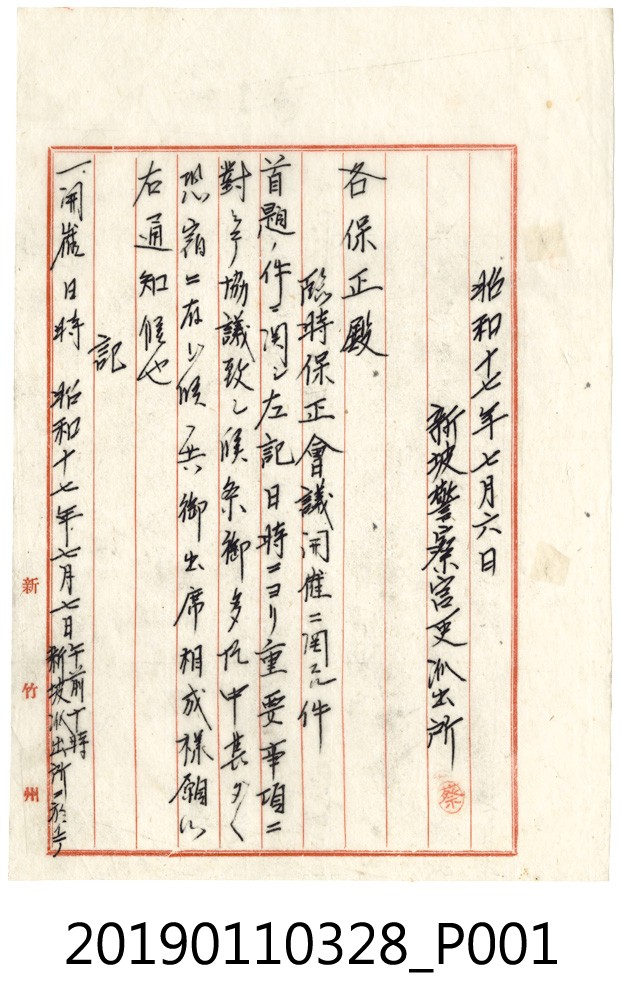 昭和十七年七月六日
新坡警察官吏派出所
蔡
各保正殿
臨時保正會議開催ニ関スル件
首題ノ件ニ関シ左記日時ニヨリ重要事項ニ
對シ協議致シ候条御多忙中甚ダ
恐縮ニ存シ候ヘ共御出席相成様願
右通知候也
記
一、開催日時 昭和十七年七月七日午前十時
新坡派出所ニ於テ
新竹州
20190110328_P001